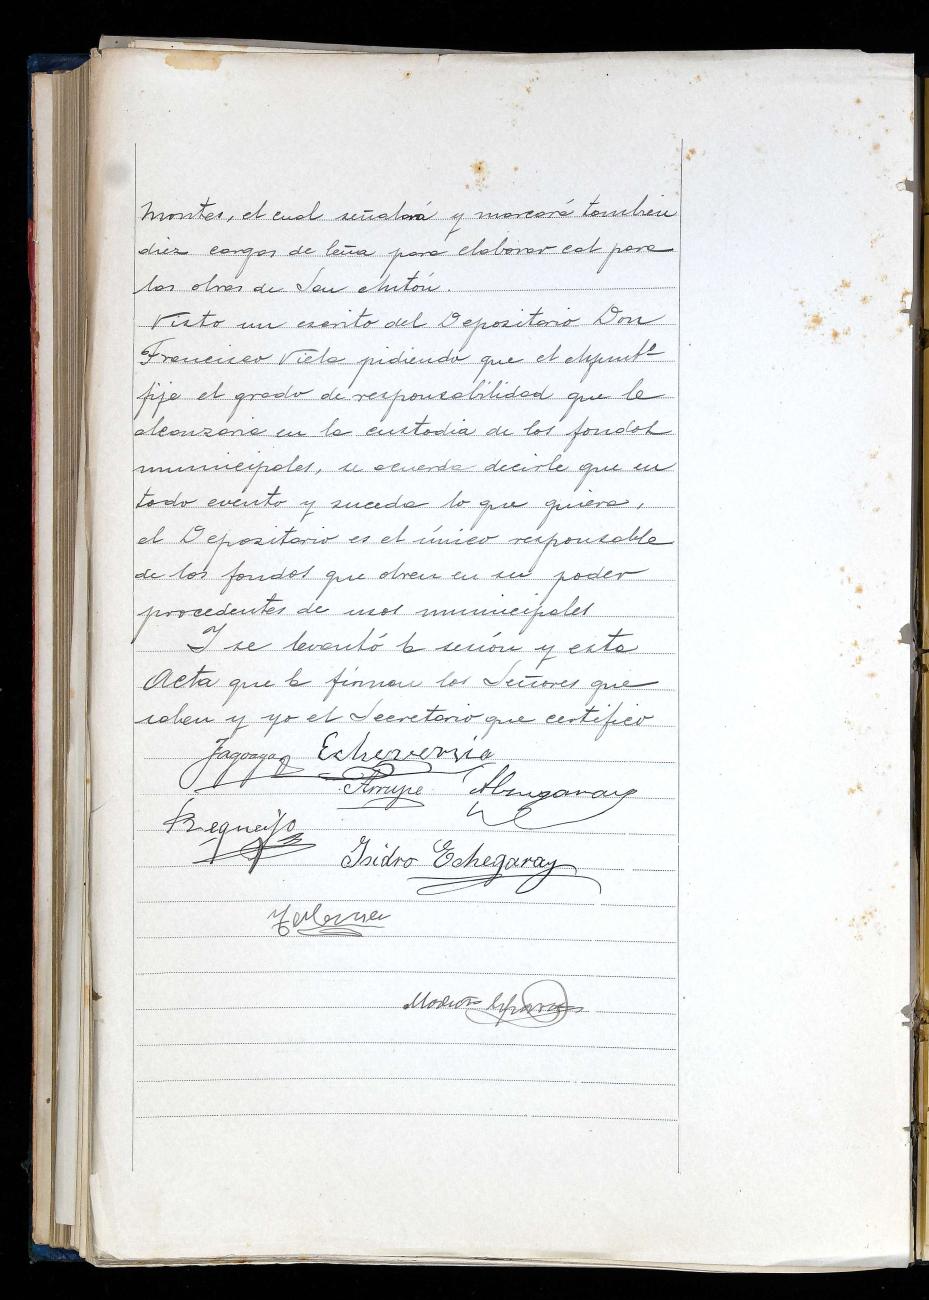 montes, el cual señalará y marcará tambien
diez cargas de leña para elaborar cal para
las obras de San Antón.
Visto un escrito del Depositario Don
Francisco Viela pidiendo que el Ayunt.º
fije el grado de responsabilidad que le
alcanzaria en la custodia de los fondos
municipales, se acuerda decirle que en
todo evento y suceda lo que quiera,
el Depositario es el único responsable
de los fondos que obren en su poder
procedentes de usos municipales
Y se levantó la sesión y esta
Acta que la firman los Señores que
saben y yo el Secretario que certifico
Jagoaga Echeverria
Arrupe
Requeijo
Isidro Echegaray